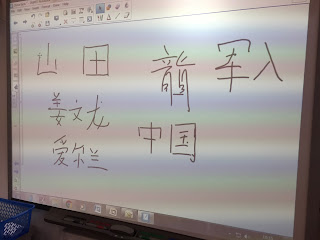 山 田 龍 军入
姜文龙
中国
爱尔兰